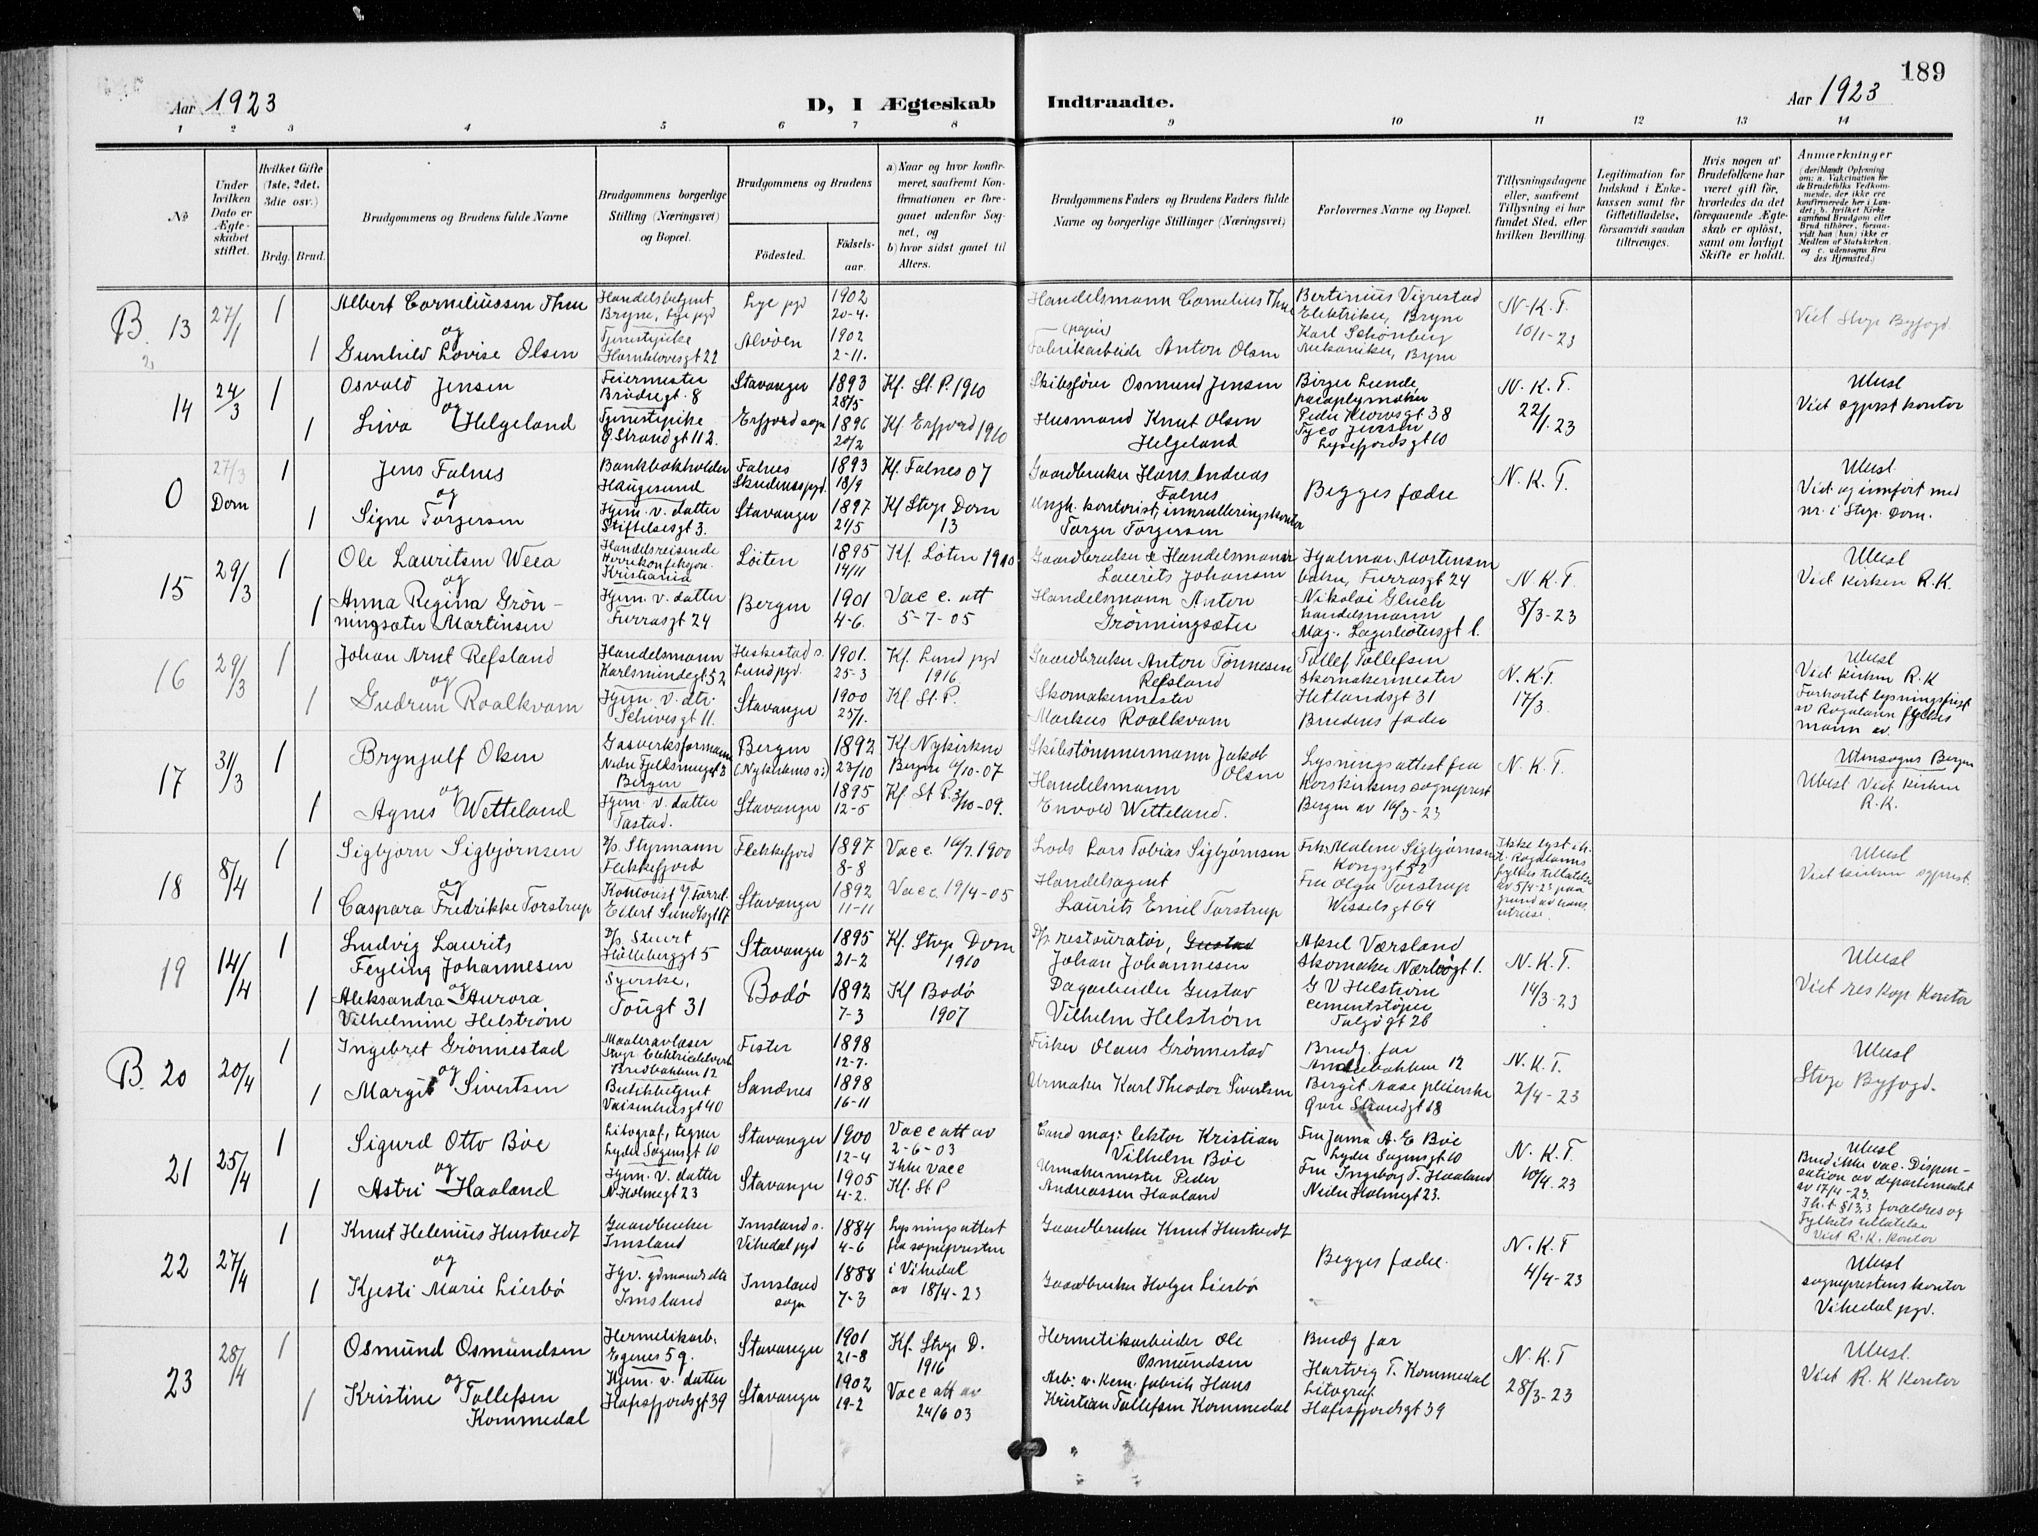 189
Aar 1923
D, I Ægteskab Indtraadte.
Aar 1923
1 2 3 4 5 6 7 8 9 10 11 12 13 14
No.
Under hvilken Dato er Ægteskabet stiftet.
Hvilket Gifte (1ste, 2det, 3die osv.)
Brdg. Brud.
Brudgommens og Brudens fulde Navne
Brudgommens borgerlige Stilling (Næringsvei) og Bopæl.
Brudgommens og Brudens
Födested.
Födselsaar.
a) Naar og hvor konfirmeret, saafremt Konfirmationen er foregaaet udenfor Sognet, og
b) hvor sidst gaaet til Alters.
Brudgommens Faders og Brudens Faders fulde Navne og borgerlige Stillinger (Næringsvei)
Forlovernes Navne og Bopæl.
Tillysningsdagene eller, saafremt Tillysning ei har fundet Sted, efter hvilken Bevilling.
Legitimation for Indskud i Enkekassen samt for Giftetilladelse, forsaavidt saadan tiltrænges.
Hvis nogen af Brudefolkene har været gift för, hvorledes da det foregaaende Ægteskab er oplöst, samt om lovligt Skifte er holdt.
Anmærkninger
(deriblandt Oplysning om: a. Vakcination for de Brudefolks Vedkommende, der ikke ere konfirmerede her i Landet; b. hvilket Kirkesamfund Brudgom eller Brud tilhörer, forsaavidt han (hun) ikke er Medlem af Statskirken, og c. udensogns Brudes Hjemsted.)
B. 13 27/1 1 Albert Corneliussen Thu Handelsbetjent Bryne, Lye pgd Lye pgd 1902 20-4. Handelsmann Cornelius Thu Bertinius Vigrestad Elektriker, Bryne N.K.T. 10/1-23 Viet Stvgr Byfogd.
og
1 Gunhild Lovise Olsen Tjenestepike Alvöen 1902 2-11. (papir) Fabrikarbeider Anton Olsen Karl Schønberg Mekaniker, Bryne
14 24/3 1 Osvald Jensen Feiermester Stavanger 1893 28/5 Kf. St. P. 1910 Skibsfører Osmund Jensen Birger Lunde, paraplymaker N.K.T. 22/1.23 Ubesl Viet sgprst kontor
og
1 Liva Helgeland Tjenestepike Ø Strandgt 112. Erfjord sogn 1896 20/2 Kf Erfjord 1910 Husmand Knut Olsen Helgeland Lysefjordsgt 10
0 27/3 Dom 1 Jens Falnes Bankbokholder Haugesund Falnes Skudenes pgd. 1893 18/9 Kf. Falnes 07 Gaardbruker Hans Andreas Falnes Begges fædre N.K.T. Ubesl. Viet og innført med nr. i Stvgr. Dom.
og
1 Signe Torgersen Hjem. v. datter Stiftelsesgt 3. Stavanger 1897 24/5 Kf Stvgr Dom 13 Torger Torgersen
15 29/3 1 Ole Lauritsen Weea Handelsreisende Kristiania Löiten 1895 14/11 Kf. Löten 1910 Gaardbruker & Handelsmann Laurits Johansen Hjalmar Mortensen Furrasgt 24 N.K.T. 8/3-23 Ubesl Viet kirken R.K.
og
1 Anna Regina Grönningsæter Martinsen Hjem. v. datter Furrasgt 24 Bergen 1901 4-6. Vacc. att 5-7-05 Handelsmann Anton Grönningsæter Nikolai Glück handelsmann
16 29/3 1 Johan Arnt Refsland Handelsmann Karlsmindegt 52 Heskestad s. Lund pgd. 1901. 25-3 Kf. Lund pgd 1916 Gaardbruker Anton Tønnesen Refsland Tollef Tollefsen Skomakermester Hetlandsgt 31 N.K.T. 17/3. Ubesl Viet kirken R.K Forkortet lysningsfrist av Rogaland fylkesmann
og
1 Gudrun Roalkvam Hjem. v. dtr. Schivesgt 11. Stavanger 1900 25/1. Kf. St. P. Skomakermester Markus Roalkvam Brudens fader
17 31/3 1 Brynjulf Olsen Gasverksformann Bergen Bergen (Nykirkens s.) 1892 23/10 Kf. Nykirken Bergen 6/10-07 Skibstømmermann Jakob Olsen Lysningsattest fra Korskirkens sogneprest Bergen av 16/3-23 N.K.T. Utensogns Bergen Ubesl Viet Kirken R.K.
og
1 Agnes Wetteland Hjem. v. datter Tastad. Stavanger 1895 12-5 Kf St P. 3/10-09. Handelsmann Envold Wetteland.
18 8/4 1 Sigbjörn Sigbjörnsen D/s. Styrmann Flekkefjord Flekkefjord 1897 8-8 Vacc. 16/7 1900 Lods Lars Tobias Sigbjørnsen Frk. Malene Sigbjørnsen Kongsgt 52 Ubesl Viet kirken sgprest.
og
1 Caspara Fredrikke Torstrup Eilert Sundtsgt 17 Stavanger 1892 11-11 Vacc 19/4-05 Handelsagent Laurits Emil Torstrup Fru Olga Torstrup Wesselsgt 64
19 14/4 1 Ludvig Laurits Feyling Johannesen D/s. Stuert Holleberggt 5 Stavanger 1895 21-2 Kf. Stvgr Dom 1910 D/s restouratør, Johan Johannesen Aksel Værsland Skomaker N.K.T. 14/3-23 Ubesl Viet res kap Kontor
og
1 Aleksandra Aurora Vilhelmine Helström Syerske, Tougt 31 Bodö 1892 7-3 Kf Bodö 1907 Dagarbeider Gustav Vilhelm Helström G V Helström cementstøper
B. 20 20/4 1 Ingebret Grönnestad Maaleravleser Stvgr. Elektricitetsverk Bredbakken 12 Fister 1898 12-7. Fisker Olaus Grönnestad Brudg. far N.K.T. 2/4-23 Ubesl Stvgr Byfogd.
og
1 Margit Sivertsen Butikkbetjent Vaisenhusgt 40 Sandnes 1898 16-11 Urmaker Karl Theodor Sivertsen Bergit Aase pleierske Övre Strandgt 18
21 25/4 1 Sigurd Otto Böe Litograf, tegner Lyder Sagensgt 10 Stavanger 1900 12-4 Vacc att av 2-6-03 Cand mag: lektor Kristian Vilhelm Böe Lyder Sagensgt 10 N.K.T. 10/4.23 Ubesl Brud ikke vac. Dispensation av departementet av 17/4-23.
og
1 Astri Haaland Hjem. v. datter N Holmegt 23 Stavanger 1905 4-2. Ikke vacc Kf. St P Urmakermester Peder Andreassen Haaland Fru Ingeborg T. Haaland Nedre Holmegt 23. Fylkets tillatelse Viet R.K. kontor
22 27/4 1 Knut Helenius Hustvedt Gaardbruker Imsland Imsland s. Vikedal pgd 1884 4-6 Lysningsattest fra sognepresten i Vikedal av 18/4-23 Gaardbruker Knut Hustvedt Begges fædre. N.K.T 4/4-23 Ubesl sogneprestens kontor Vikedal pgd.
og
1 Kjesti Marie Lierbö Imsland Imsland sogn 1888 7-3 Gaardbruker Holger Lierbö
23 28/4 1 Osmund Osmundsen Hermetikarb. Egenes 59. Stavanger 1901 21-8 Kf. Stvgr D. 1916 Hermetikarbeider Ole Osmundsen Brudg far N.K.T 28/3-23 Ubesl. Viet R.K Kontor
og
1 Kristine Tollefsen Kommedal Hjem. v. datter Hafrsfjordsgt 39 Stavanger 1902 19-2 Vacc att av 24/6 03 Arb. v. kem. fabrik Hans Kristian Tollefsen Kommedal Hartvig T. Kommedal Litograf Hafrsfjordsgt 39